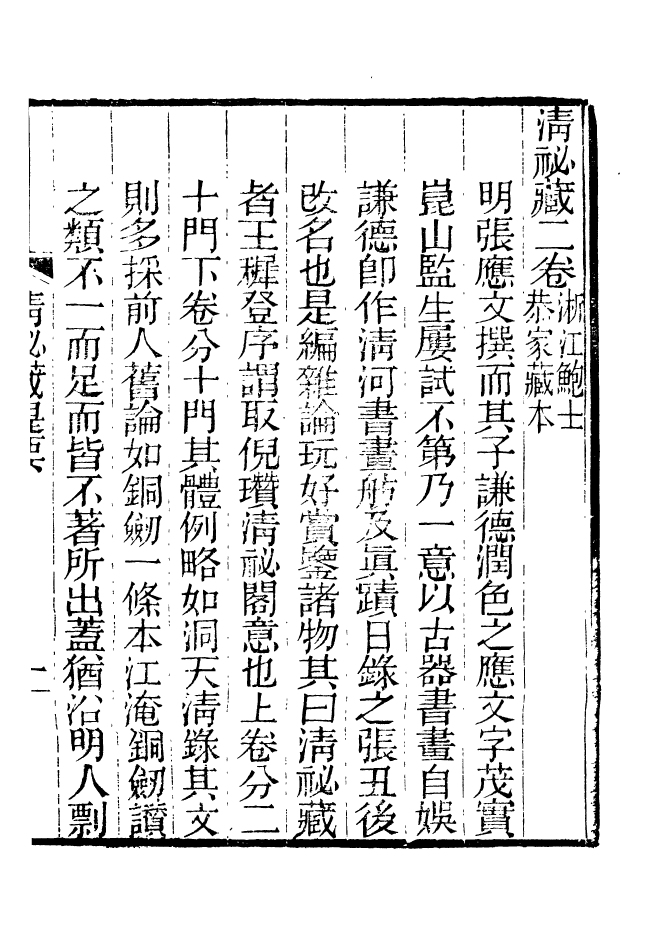 清祕藏二卷浙江鮑士
恭家藏本
明張應文撰而其子謙德潤色之應文字茂實
崑山監生屢試不第乃一意以古器書畫自娛
謙德卽作清河書畫舫及眞蹟日錄之張丑後
改名也是編雜論玩好賞鑒諸物其曰清祕藏
者王穉登序謂取倪瓚清祕閣意也上卷分二
十門下卷分十門其體例略如洞天清錄其文
則多採前人舊論如銅劒一條本江淹銅劒讚
之類不一而足而皆不著所出蓋猶沿明人剽
清祕藏提要 一